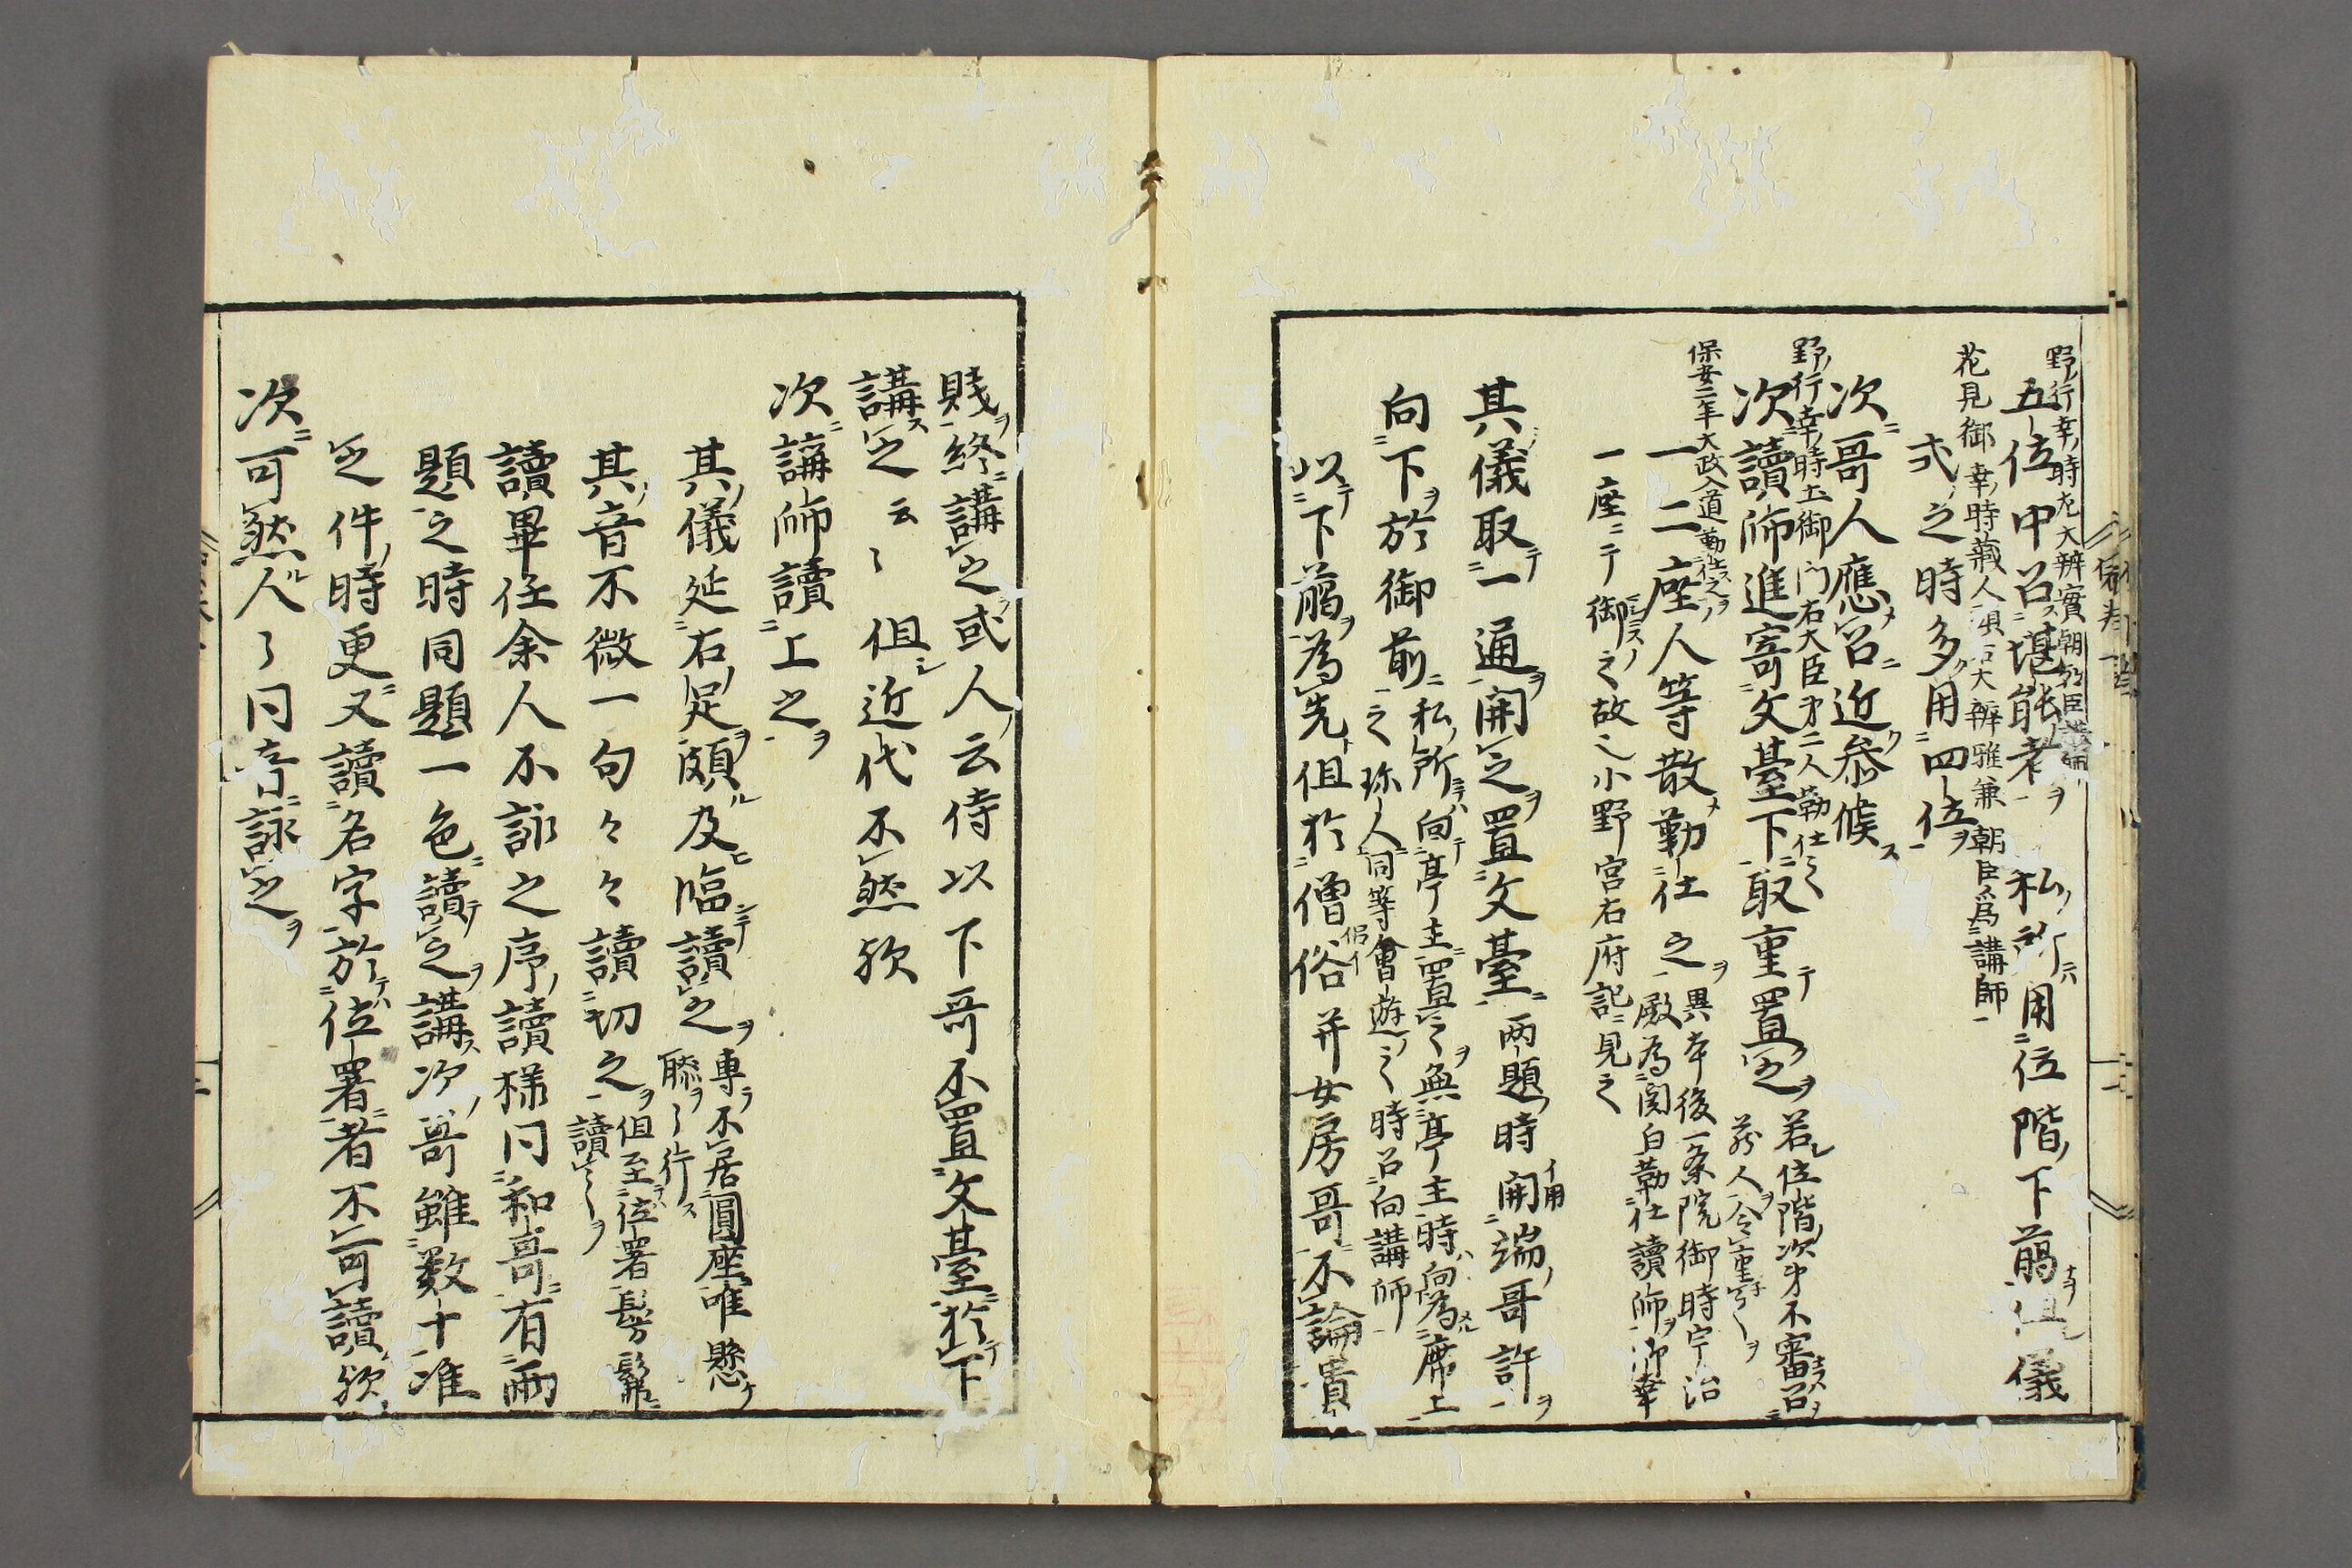 野行幸時左大辨實朝臣
五位中召堪能者私所用位階下﨟但儀
花見御幸時蔵人頭右大辨雅兼朝臣為講師
式之時多用四位
次哥人應召近参候
野行幸時土御門右大臣才二人勤仕之
次讀師進寄文臺下取重置之若位階次才不審召
䓁人令重之
保安二年大政入道勤仕之
一二座人等散勤仕之異本後一条院御時宇治
殿為関白勤仕讀師御幸
一座ニテ御之故也小野宮右府記見之
其儀取一通開之置文臺両題時開端哥許
イ用
向下於御前私所向亭主置之無亭主時向為席上
之珎人同等會遊之時召向講師
侶イ
以下﨟為先但於僧俗并女房哥不論貴
賤終講之或人云侍以下哥不置文臺於下
講之云々但近代不然歟
次講師讀上之
其儀延右足頗及臨讀之專不居圓座唯懸
膝々行
其音不微一句々々讀切之但至位署髣髴
讀之
讀畢任余人不詠之序讀様同和哥有両
題之時同題一色讀之講次哥雖数十准
之件時更又讀名字於位署者不可讀歟
次可然人々同音詠之